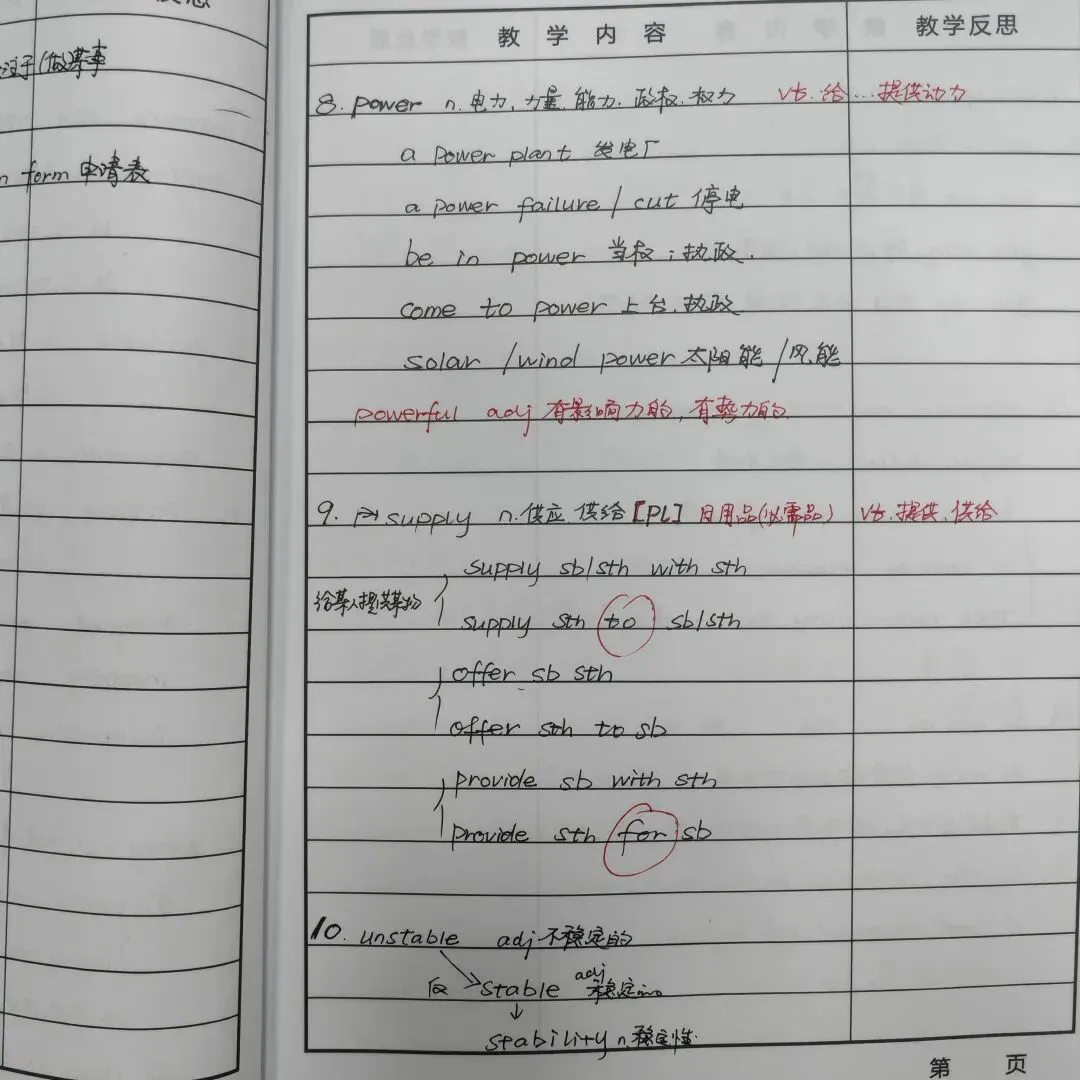 (做)某事
form 申请表
教学内容 教学反思
8. power n.电力,力量.能力.政权.权力 vt.给...提供动力
a power plant 发电厂
a power failure / cut 停电
be in power 当权;执政.
come to power 上台.执政
solar /wind power 太阳能/风能
powerful adj 有影响力的,有势力的.
9. supply n.供应.供给[PL] 日用品(必需品) vt.提供.供给
supply sb/sth with sth
给某人提供某物
supply sth to sb/sth
offer sb sth
offer sth to sb
provide sb with sth
provide sth for sb
10. unstable adj不稳定的
反 stable adj 稳定
stability n.稳定性.
第 页